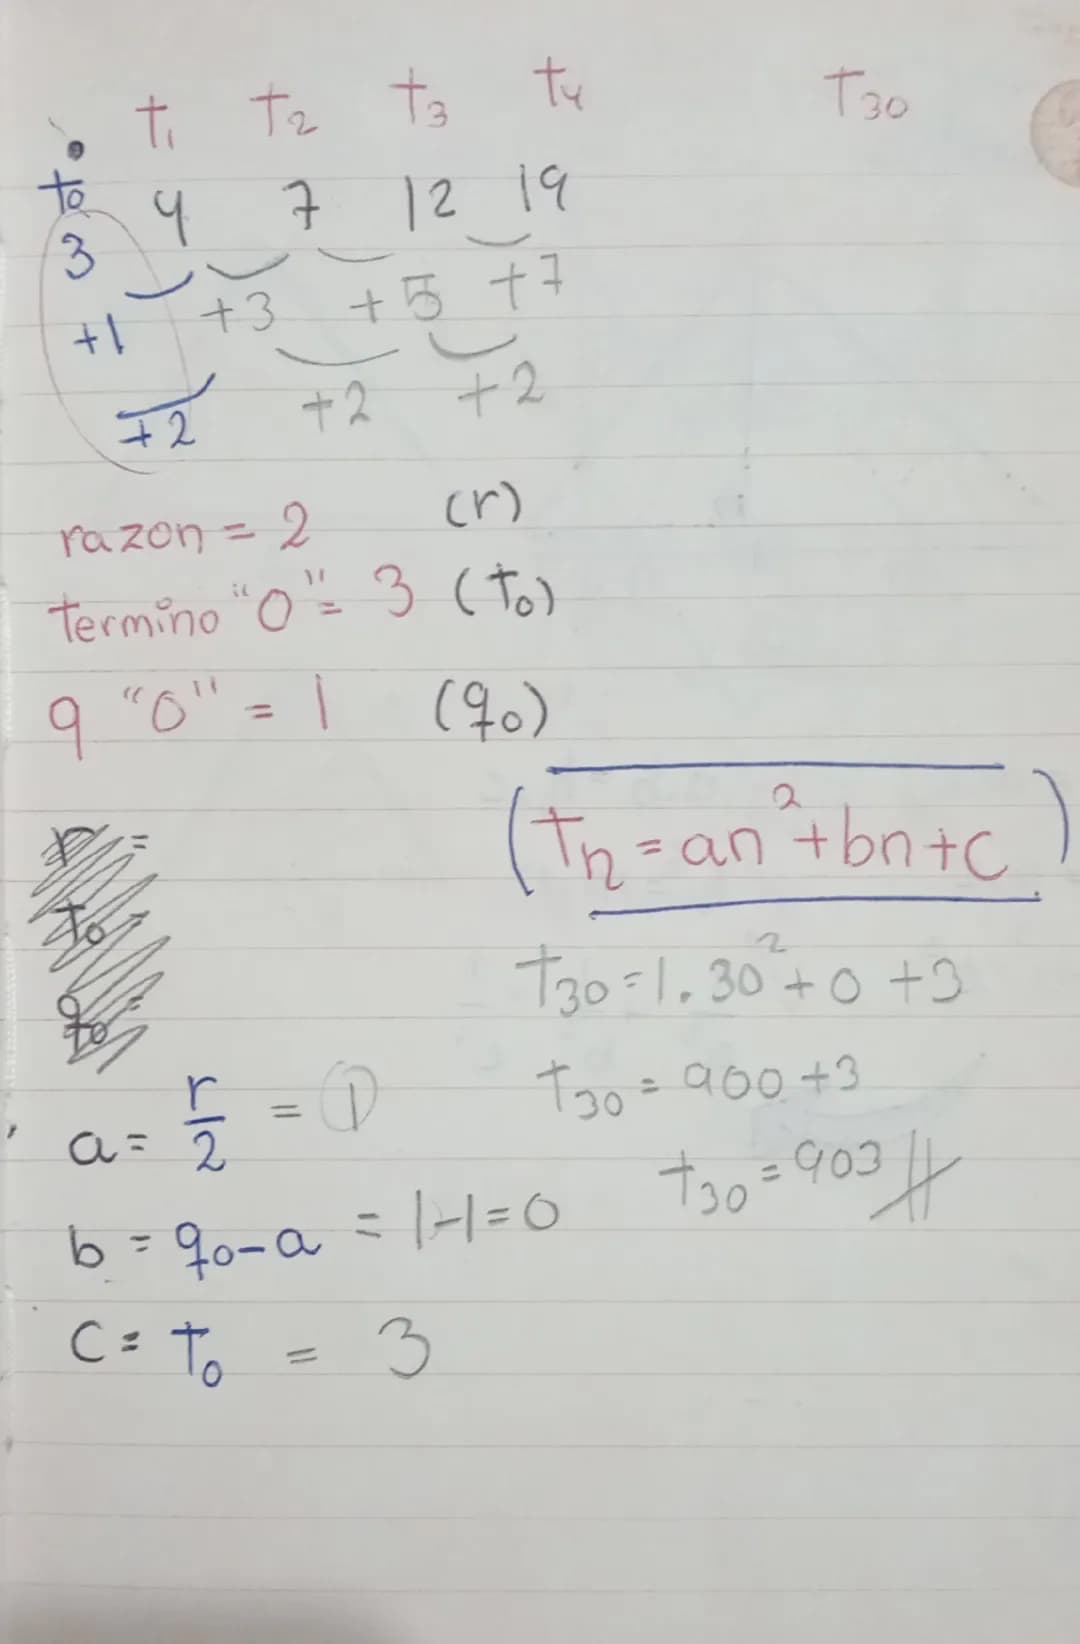 t₁ t₂ t₃ t₄ T₃₀
t₀ 4 7 12 19
3
+1 +3 +5 +7
+2 +2 +2
razon = 2 (r)
termino "0" = 3 (t₀)
q "0" = 1 (q₀)
(Tn = an² + bn + c)
r =
t₀ =
q₀ =
T₃₀ = 1 . 30² + 0 + 3
T₃₀ = 900 + 3
T₃₀ = 903 //
a = r/2 = 1
b = q₀ - a = 1-1 = 0
C = T₀ = 3